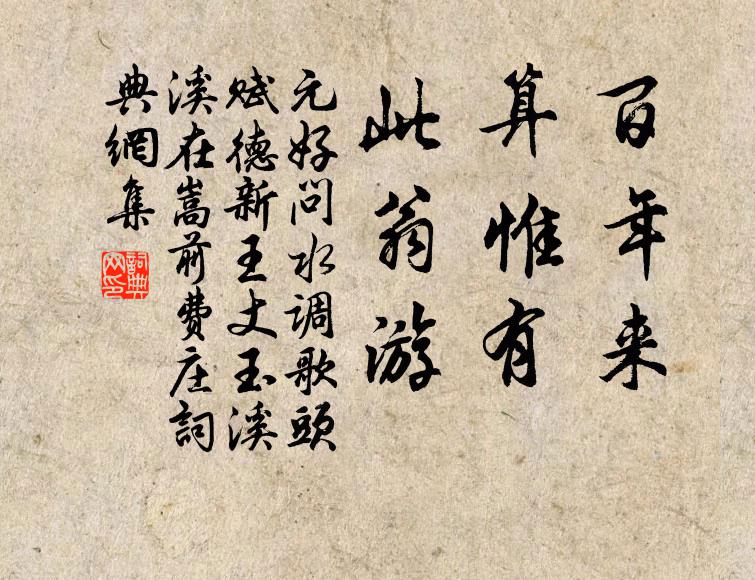 百年来
算惟有
此翁游
元好问水调歌头
赋德新王丈玉溪
溪在嵩前费庄詞
典網集
詞典網印